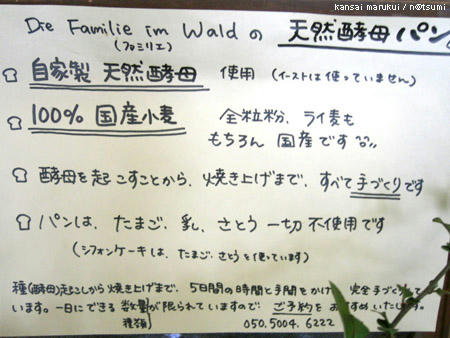 kansai marukui / n@tsumi
Die Familie im Wald の 天然酵母パン。
(ファミリエ)
自家製 天然酵母 使用 (イーストは使っていません)
100% 国産小麦 全粒粉、ライ麦も
もちろん 国産です
酵母を起こすことから、焼き上げまで、すべて手づくりです
パンは、たまご、乳、さとう 一切 不使用です
(シフォンケーキは、たまご、さとうを使っています)
種(酵母)起こしから焼き上げまで、5日間の時間と手間をかけ 完全手づくりして
います。一日にできる 数量が限られていますので、ご予約を おすすめいたします。
種類
050.5004.6222